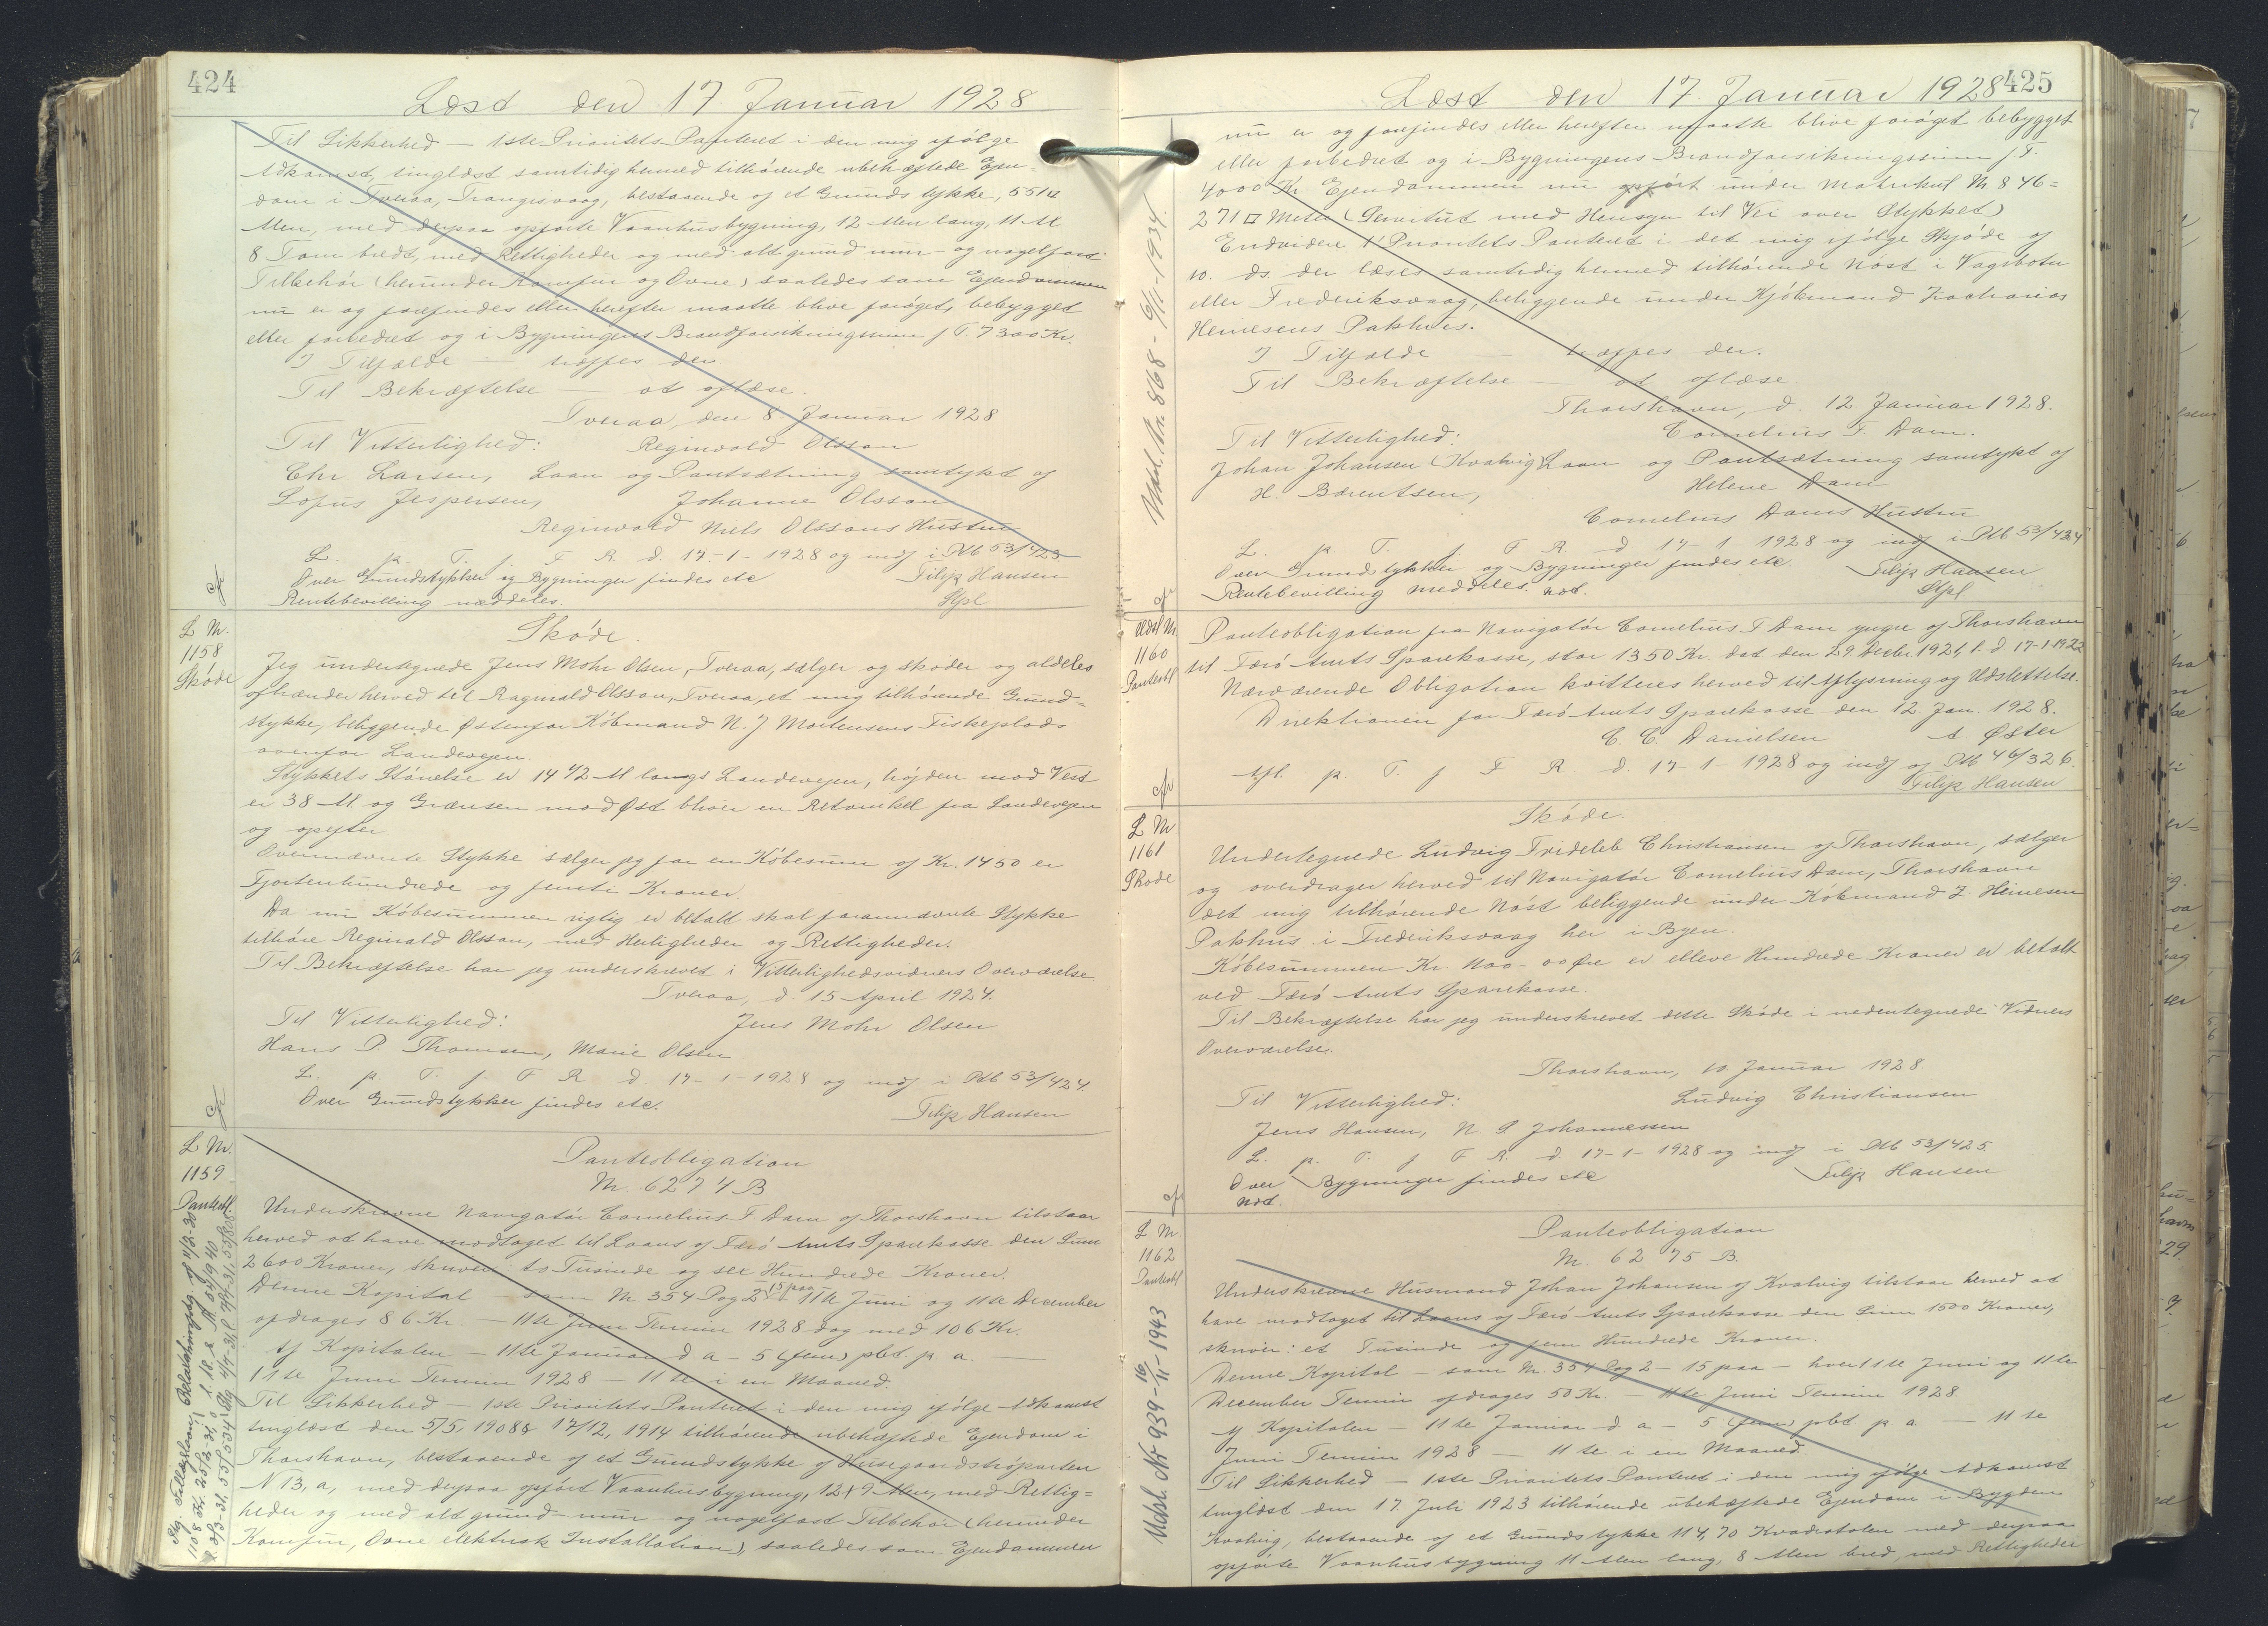 424
Læst den 17 Januar 1928
Til Sikkerhed — 1ste Prioritets Panteret i den mig ifølge
Adkomst, tinglæst samtidig hermed tilhørende ubehæftede Ejen-
dom i Tveraa, Trangisvaag, bestaaende af et Grundstykke, 551 □
Alen, med derpaa opførte Vaanhusbygning, 12 Alen lang, 11 Al
8 Tom bredt, med Rettigheder og med alt grund mur- og nagelfast
Tilbehør (herunder Komfur og Ovne) saaledes som Ejendommen
nu er og forefindes eller herefter maatte blive forøget, bebygget
eller forbedret og i Bygningens Brandforsikringssum f T. 7300 Kr.
I Tilfælde — træffes der
Til Bekræftelse — at aflæse.
Tveraa, den 8 Januar 1928
Til Vitterlighed: Reginvald Olsson
Chr. Larsen, Laan og Pantsætning samtykt af
Lofus Jespersen, Johanne Olsson
Reginvald Niels Olssons Hustru
L. p. T. f. F R. d. 17-1-1928 og indf i Ptb 53/423
Over Grundstykker og Bygninger findes etc Filip Hansen
Rentebevilling meddeles. Stpl
L Nr.
1158
Skøde
Skøde.
Jeg undertegnede Jens Mohr Olsen, Tveraa, sælger og skøder og aldeles
afhænder herved til Raginald Olsson, Tveraa, et mig tilhørende Grund=
stykke, beliggende Østenfor Købmand N. J. Mortensens Fiskeplads
ovenfor Landevejen.
Stykkets Størrelse er 14 1/2 Al langs Landevejen, højden mod Vest
er 38 Al. og Grænsen mod Øst bliver en Retvinkel fra Landevejen
og opefter
Ovennævnte Stykke sælger jeg for en Købesum af Kr. 1450 er
Fjortenhundrede og femti Kroner.
Da nu Købesummen rigtig er betalt skal forannævnte Stykke
tilhøre Reginald Olsson, med Herligheder og Rettigheder.
Til Bekræftelse har jeg underskrevet i Vitterlighedsvidners Overværelse.
Tveraa, d. 15 April 1927.
Til Vitterlighed: Jens Mohr Olsen
Hans P. Thomsen, Marie Olsen
L. p. T. f. F R d. 17-1-1928 og indf i Ptb 53/424
Over Grundstykker findes etc. Filip Hansen
L Nr.
1159
Panteobl.
Panteobligation
Nr. 6274 B
Underskrevne Navigatør Cornelius F Dam af Thorshavn tilstaar
herved at have modtaget til Laans af Færø Amts Sparekasse den Sum
2600 Kroner, skriver: to Tusinde og sex Hundrede Kroner.
Denne Kapital — som Nr 354 Pag 2 - 15 paa - 11te Juni og 11te December
afdrages 86 Kr. — 11te Juni Termin 1928 dog med 106 Kr.
Af Kapitalen — 11te Januar d a - 5 (fem) pbt. p a. —
11te Juni Termin 1928 — 11te i en Maaned.
Til Sikkerhed — 1ste Prioritets Panteret i den mig ifølge Adkomst
tinglæst den 5/5, 1908 & 17/12, 1914 tilhørende ubehæftede Ejendom i
Thorshavn, bestaaende af et Grundstykke af Husegaardstróparten
N 13, a, med derpaa opført Vaanhusbygning, 12 x 9 Alen, med Rettig=
heder og med alt grund- mur- og nagelfast Tilbehør (herunder
Komfur, Ovne elektrisk Installation), saaledes som Ejendommen
425
Læst den 17. Januar 1928
nu er og forefindes eller herefter maatte blive forøget bebygget
eller forbedret og i Bygningens Brandforsikringssum f T.
4000 Kr. Ejendommen nu opført under Matrikul Nr 846=
271 □ Meter (Servitut med Hensyn til Vei over Stykket)
Endvidere 1' Prioritets Panteret i det mig ifølge Skjøde af
10. ds. der læses samtidig hermed tilhørende Nøst i Vagsbotn
eller Frederiksvaag, beliggende under Kjøbmand Zacharias
Heinesens Pakhus.
I Tilfælde — træffes der.
Til Bekræftelse — at aflæse.
Thorshavn, d. 12 Januar 1928.
Til Vitterlighed: Cornelius F. Dam.
Johan Johansen (Kvalvig) Laan og Pantsætning samtykt af
H. Bærentsen, Helene Dam
Cornelius Dams Hustru
L. p T. f F R d 17-1-1928 og indf i Ptb 53/424
Over Grundstykker og Bygninger findes etc. Filip Hansen
Rentebevilling meddeles. not. Stpl
Mdsl. Nr. 868 - 9/1-1934.
Udsl Nr.
1160
Panteobl
Panteobligation fra Navigatør Cornelius F Dam yngre af Thorshavn
til Færø Amts Sparekasse, stor 1350 Kr. dat den 29. Decbr. 1921, l. d. 17-1-1922
Nærværende Obligation kvitteres herved til Aflysning og Udslettelse.
Direktionen for Færø Amts Sparekasse den 12. Jan. 1928.
C. C. Danielsen A. Øster
Afl. p. T. f F R d. 17-1-1928 og indf af Ptb 46/326.
Filip Hansen
L Nr
1161
Skøde
Skøde.
Undertegnede Ludvig Fredeleb Christiansen af Thorshavn, sælger
og overdrager herved til Navigatør Cornelius Dam, Thorshavn
det mig tilhørende Nøst beliggende under Købmand Z Heinesen
Pakhus i Frederiksvaag her i Byen.
Købesummen Kr. 1100-00 Øre er elleve Hundrede Kroner er betalt
ved Færø Amts Sparekasse.
Til Bekræftelse har jeg underskrevet dette Skøde i nedentegnede Vidners
Overværelse.
Thorshavn, 10. Januar 1928
Til Vitterlighed: Ludvig Christiansen
Jens Hansen, N. P. Johannessen
L. p. T. f F R. d. 17-1-1928 og indf i Ptb 53/425.
Over Bygninger findes etc Filip Hansen
not.
L Nr.
1162
Panteobl
Panteobligation
Nr. 6275 B.
Underskrevne Husmand Johan Johansen af Kvalvig tilstaar herved at
have modtaget til Laans af Færø Amts Sparekasse den Sum 1500 Kroner,
skriver: et Tusinde og fem Hundrede Kroner.
Denne Kapital — som Nr. 354 Pag 2 - 15 paa — hver 11te Juni og 11te
December Termin afdrages 50 Kr. — 11te Juni Termin 1928
Af Kapitalen — 11te Januar d a - 5 (fem) pbt p a — 11te
Juni Termin 1928 — 11te i en Maaned.
Til Sikkerhed — 1ste Prioritets Panteret i den mig ifølge Adkomst
tinglæst den 17 Juli 1923 tilhørende ubehæftede Ejendom i Bygden
Kvalvig, bestaaende af et Grundstykke 114,70 Kvadratalen med derpaa
opførte Vaanhusbygning 11 Alen lang, 8 Alen bred, med Rettigheder
Udsl. Nr 939 - 16/11-1943